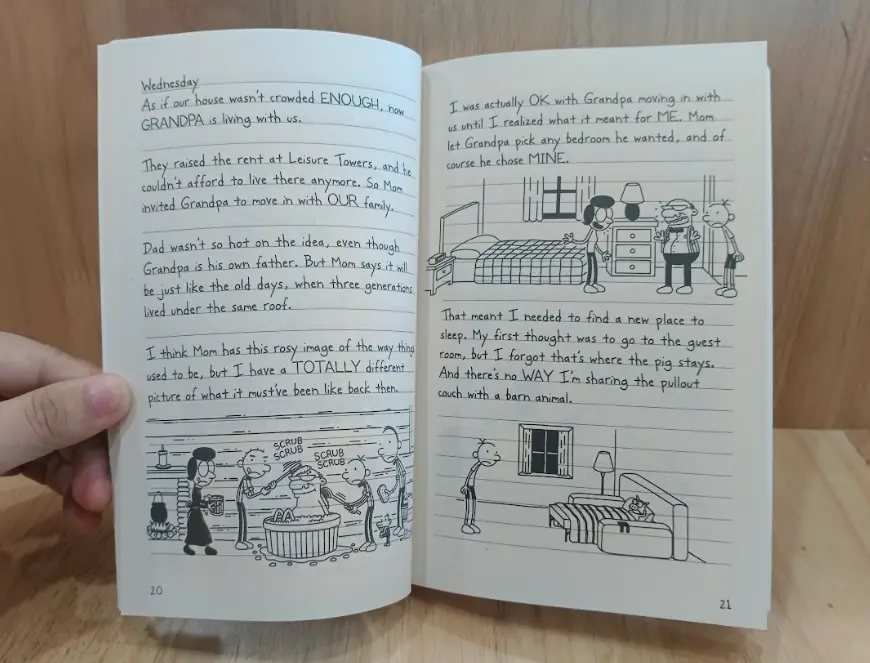 Wednesday
As if our house wasn't crowded ENOUGH, now
GRANDPA is living with us.
They raised the rent at Leisure Towers, and he
couldn't afford to live there anymore. So Mom
invited Grandpa to move in with OUR family.
Dad wasn't so hot on the idea, even though
Grandpa is his own father. But Mom says it will
be just like the old days, when three generations
lived under the same roof.
I think Mom has this rosy image of the way things
used to be, but I have a TOTALLY different
picture of what it must've been like back then.
SCRUB
SCRUB
SCRUB
SCRUB
20
I was actually OK with Grandpa moving in with
us until I realized what it meant for ME. Mom
let Grandpa pick any bedroom he wanted, and of
course he chose MINE.
That meant I needed to find a new place to
sleep. My first thought was to go to the guest
room, but I forgot that's where the pig stays.
And there's no WAY I'm sharing the pullout
couch with a barn animal.
21